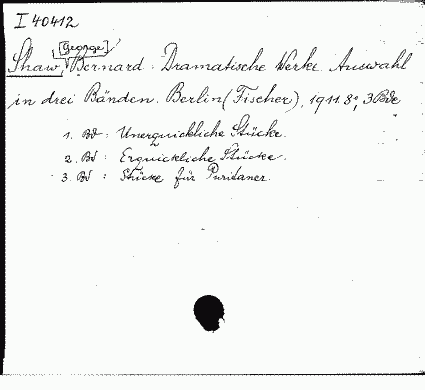 I 40412
[George]
Shaw, Bernard: Dramatische Werke. Auswahl
in drei Bänden. Berlin (Fischer), 1911. 8°, 3 Bde
1. Bd: Unerquickliche Stücke.
2. Bd: Erquickliche Stücke.
3. Bd: Stücke für Puritaner.